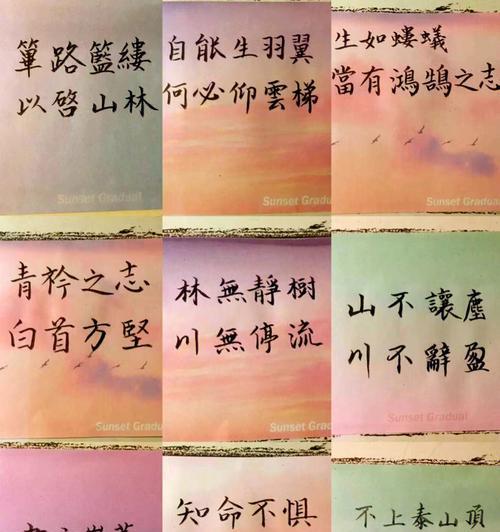 篳路籃縷
以啓山林
Sunset Gradual
自能生羽翼
何必仰雲梯
Sunset Gradu
生如螻蟻
當有鴻鵠之志
Sunset Gradu
青衿之志
白首方堅
Sunset Gradu
林無靜樹
川無停流
Sunset Gradu
山不讓塵
川不辭盈
Sunset Gradual
知命不惧
不上泰山頂